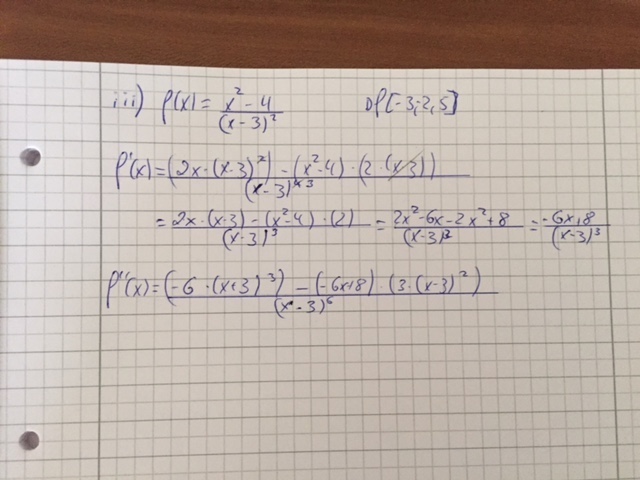 iii) f(x) = (x² - 4) / (x - 3)² Df[-3; 2,5]
f'(x) = ((2x · (x-3)²) - (x²-4) · (2 · (x-3))) / (x - 3)⁴ ³
= (2x · (x-3) - (x²-4) · (2)) / (x-3)³ = (2x² - 6x - 2x² + 8) / (x-3)³ = (-6x+8) / (x-3)³
f''(x) = ((-6 · (x+3)³) - (-6x+8) · (3 · (x-3)²)) / (x - 3)⁶